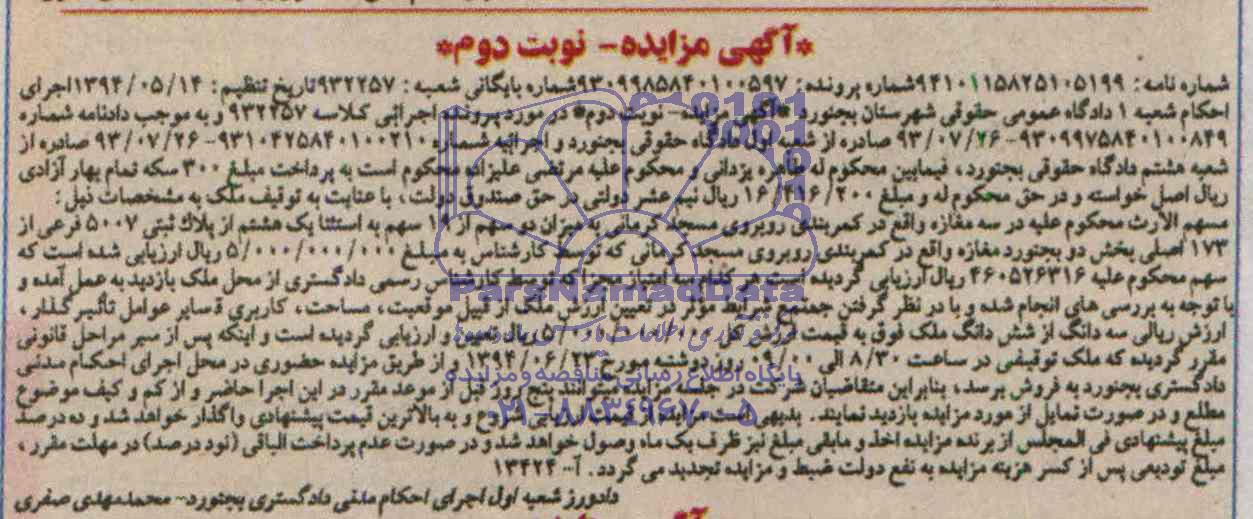 *آگهی مزایده- نوبت دوم*
شماره نامه: ۹۴۱۰۱۱۵۸۲۵۱۰۵۱۹۹شماره پرونده: ۹۳۰۹۹۸۵۸۴۰۱۰۰۵۹۷شماره بایگانی شعبه: ۹۳۲۲۵۷تاریخ تنظیم: ۱۳۹۴/۰۵/۱۴اجرای
احکام شعبه ۱ دادگاه عمومی حقوقی شهرستان بجنورد *آگهی مزایده- نوبت دوم* در مورد پرونده اجرائی کلاسه ۹۳۲۲۵۷ و به موجب دادنامه شماره
۹۳۰۹۹۷۵۸۴۰۱۰۰۸۴۹- ۹۳/۰۷/۲۶ صادره از شعبه اول دادگاه حقوقی بجنورد و اجرائیه شماره ۹۳۱۰۴۲۵۸۴۰۱۰۰۲۱۰- ۹۳/۰۷/۲۶ صادره از
شعبه هشتم دادگاه حقوقی بجنورد، فیمابین محکوم له طاهره یزدانی و محکوم علیه مرتضی علیزاده محکوم است به پرداخت مبلغ ۳۰۰ سکه تمام بهار آزادی
ریال اصل خواسته و در حق محکوم له و مبلغ ۱۶/۴۱۶/۲۰۰ ریال نیم عشر دولتی در حق صندوق دولت، با عنایت به توقیف ملک به مشخصات ذیل:
سهم الارث محکوم علیه در سه مغازه واقع در کمربندی روبروی مسجد کرمانی به میزان دو سهم از ۱۹ سهم به استثنا یک هشتم از پلاک ثبتی ۵۰۰۷ فرعی از
۱۷۳ اصلی بخش دو بجنورد مغازه واقع در کمربندی روبروی مسجد کرمانی که توسط کارشناس به مبلغ ۵/۰۰۰/۰۰۰/۰۰۰ ریال ارزیابی شده است که
سهم محکوم علیه ۴۶۰۵۲۶۳۱۶ ریال ارزیابی گردیده است هر کدام با امتیاز مجزا که توسط کارشناس رسمی دادگستری از محل ملک بازدید به عمل آمده و
با توجه به بررسی های انجام شده و با در نظر گرفتن جمیع شرایط موثر در تعیین ارزش ملک از قبیل موقعیت، مساحت، کاربری و سایر عوامل تأثیر گذار،
ارزش ریالی سه دانگ از شش دانگ ملک فوق به قیمت ارزش کل ریال تعیین و ارزیابی گردیده است و اینکه پس از سیر مراحل قانونی
مقرر گردیده که ملک توقیفی در ساعت ۸/۳۰ الی ۰۹/۰۰ روز دوشنبه مورخ ۱۳۹۴/۰۶/۲۳ و از طریق مزایده حضوری در محل اجرای احکام مدنی
دادگستری بجنورد به فروش برسد، بنابراین متقاضیان شرکت در جلسه مزایده می توانند پنج روز قبل از موعد مقرر در این اجرا حاضر و از کم و کیف موضوع
مطلع و در صورت تمایل از مورد مزایده بازدید نمایند. بدیهی است مزایده از قیمت ارزیابی شروع و به بالاترین قیمت پیشنهادی واگذار خواهد شد و ده درصد
مبلغ پیشنهادی فی المجلس از برنده مزایده اخذ و مابقی مبلغ نیز ظرف یک ماه وصول خواهد شد و در صورت عدم پرداخت الباقی (نود درصد) در مهلت مقرر،
مبلغ تودیعی پس از کسر هزینه مزایده به نفع دولت ضبط و مزایده تجدید می گردد. آ- ۱۳۴۲۴
دادورز شعبه اول اجرای احکام مدنی دادگستری بجنورد- محمدمهدی صفری
ParsNamadData
پایگاه اطلاع رسانی مناقصه و مزایده
۰۲۱-۸۸۳۴۹۶۷۰-۵